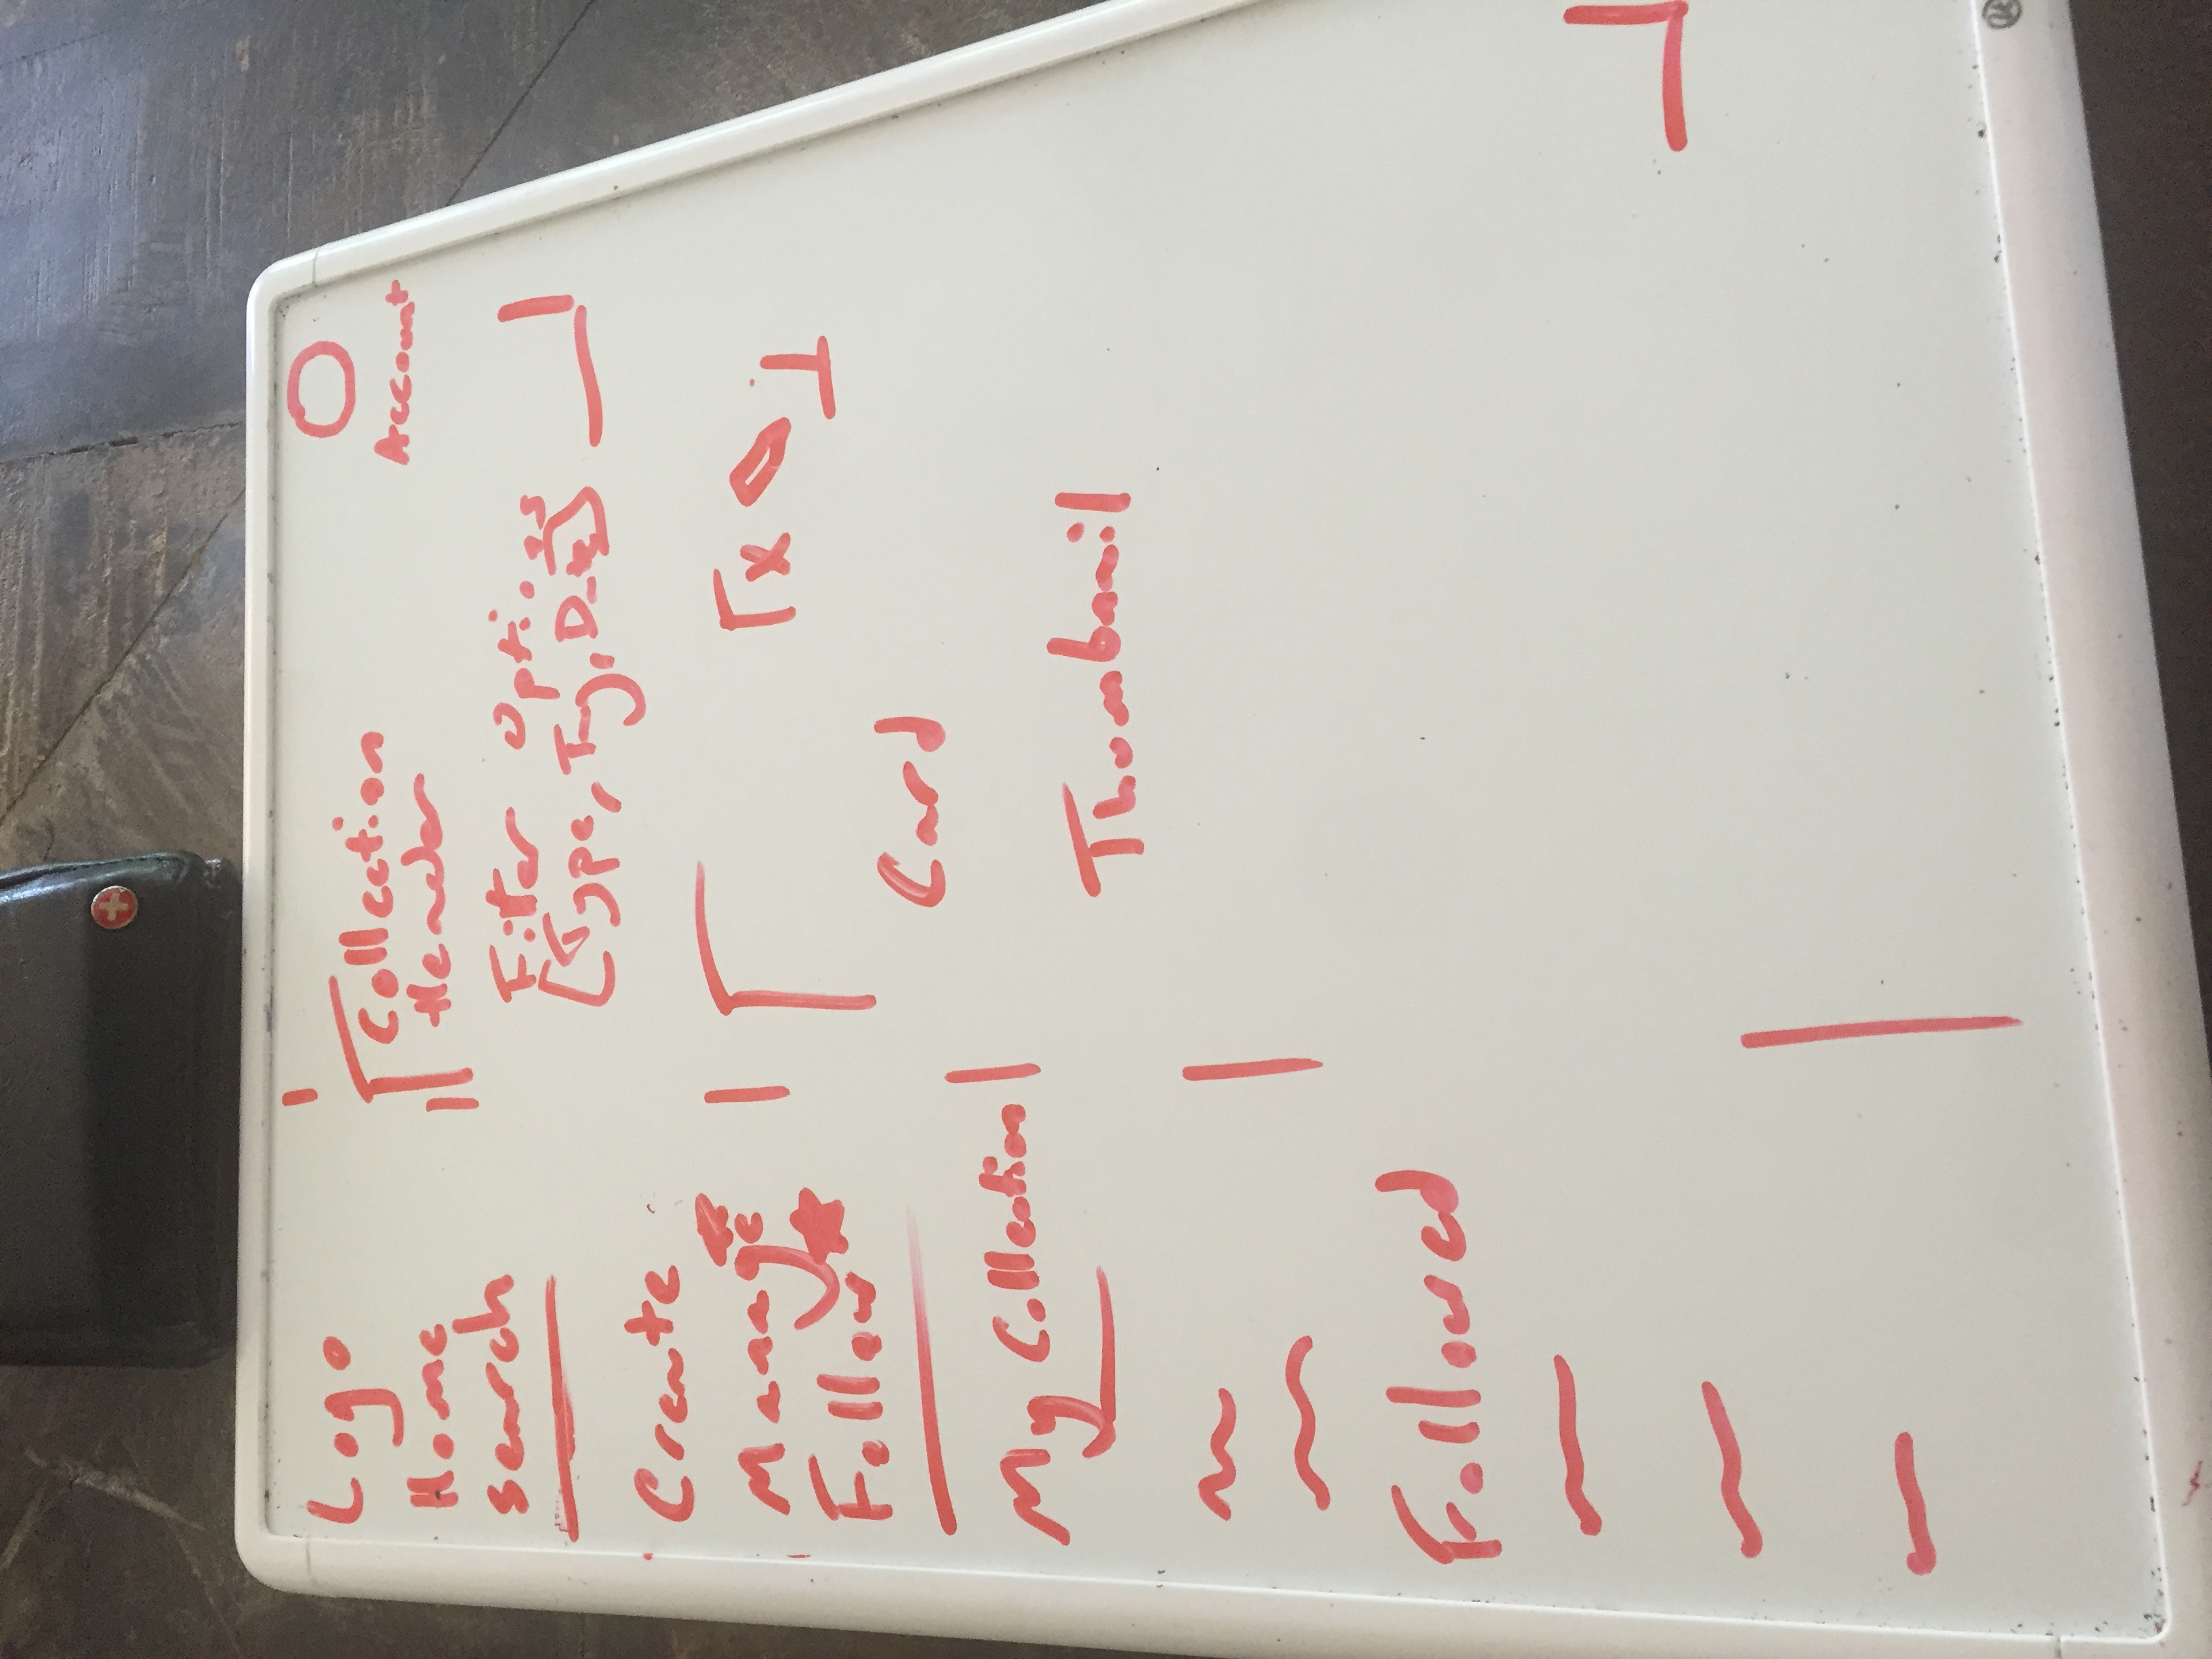 Logo
Home
Search
Create
Manage
Follow
My Collection
Followed
Collection
Header
Account
Filter Options
[Type, Tag, Date]
x
Card
Thumbnail